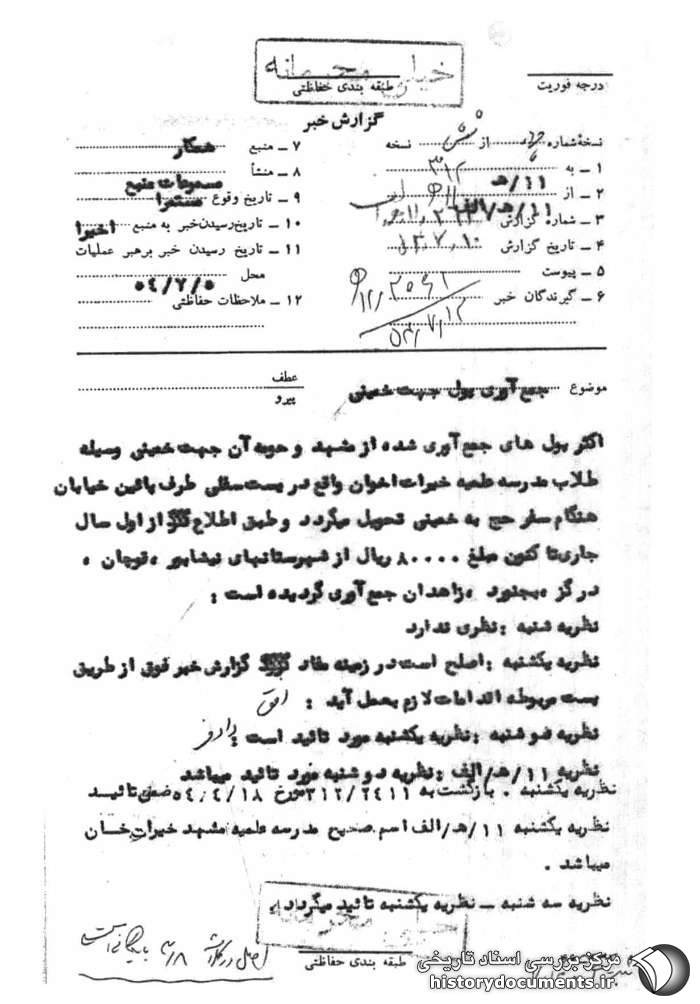 خیلی محرمانه
طبقه بندی حفاظتی
درجه فوریت
گزارش خبر
نسخهٔ شماره از شش نسخه
۱ ـ به ۳۱۲
۲ ـ از ۱۱/هـ
۳ ـ شماره گزارش ۱۱/هـ/الف
۴ ـ تاریخ گزارش
۵ ـ پیوست
۶ ـ گیرندگان خبر
۷ ـ منبع همکار
۸ ـ منشأ مسموعات منبع
۹ ـ تاریخ وقوع مستمرا
۱۰ ـ تاریخ رسیدن خبر به منبع اخیرا
۱۱ ـ تاریخ رسیدن خبر برهبر عملیات
محل ۵۴/۷/۵
۱۲ ـ ملاحظات حفاظتی
موضوع جمع آوری پول جهت خمینی
عطف
پیرو
اکثر پول های جمع آوری شده از مشهد و حومه آن جهت خمینی وسیله
طلاب مدرسه علمیه خیرات اخوان واقع در بست سفلی طرف پائین خیابان
هنگام سفر حج به خمینی تحویل میگردد و طبق اطلاع از اول سال
جاری تا کنون مبلغ ۸۰۰۰۰ ریال از شهرستانهای نیشابور ، قوچان ،
درگز ، بجنورد ، زاهدان جمع آوری گردیده است :
نظریه شنبه : نظری ندارد
نظریه یکشنبه : اصلح است در زمینه مفاد گزارش خبر فوق از طریق
بست مربوطه اقدامات لازم بعمل آید : افق
نظریه دوشنبه : نظریه یکشنبه مورد تائید است :
نظریه ۱۱/هـ/الف : نظریه دوشنبه مورد تائید میباشد
نظریه یکشنبه . بازگشت به ۳۱۲/۲۴۱۱ مورخ ۵۴/۴/۱۸ ضمن تائید
نظریه یکشنبه ۱۱/هـ/الف اسم صحیح مدرسه علمیه مشهد خیرات خان
میباشد .
نظریه سه شنبه ـ نظریه یکشنبه تائید میگردد
طبقه بندی حفاظتی
مرکز بررسی اسناد تاریخی
historydocuments.ir